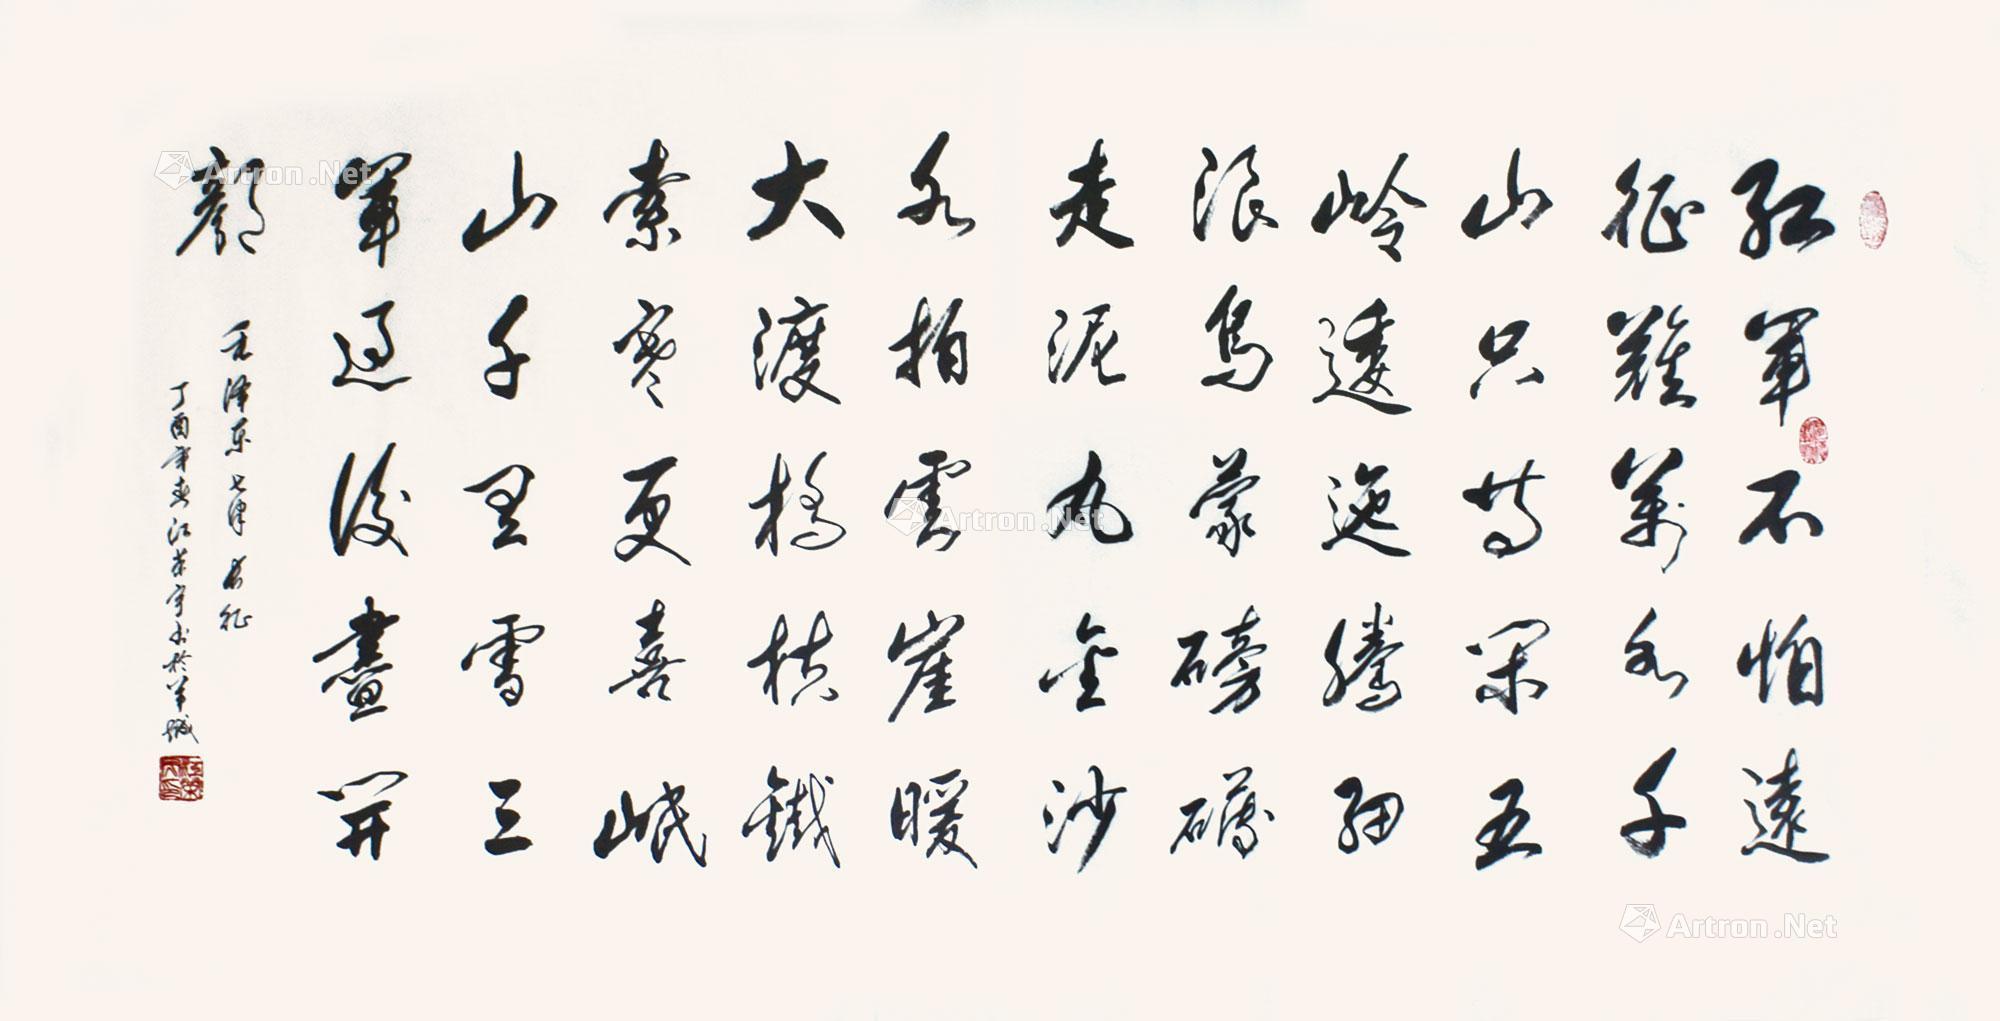 紅軍不怕遠
征難萬水千
山只等閑五
岭逶迤騰細
浪烏蒙磅礴
走泥丸金沙
水拍雲崖暖
大渡橋横鐵
索寒更喜岷
山千里雪三
軍過後盡開
顏
毛泽东七律长征
丁酉年春江荣宇书於羊城
Artron.Net
Artron.Net
Artron.Net